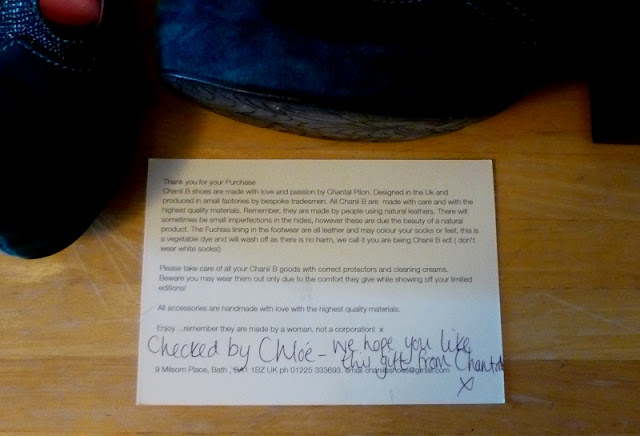 Thank you for your Purchase
Chanii B shoes are made with love and passion by Chantal Pilon. Designed in the Uk and
produced in small factories by bespoke tradesmen. All Chanii B are made with care and with the
highest quality materials. Remember, they are made by people using natural leathers. There will
sometimes be small imperfections in the hides, however these are due the beauty of a natural
product. The Fuchsia lining in the footwear are all leather and may colour your socks or feet, this is
a vegetable dye and will wash off as there is no harm, we call it you are being Chanii B ed! ( don't
wear white socks!)
Please take care of all your Chanii B goods with correct protectors and cleaning creams.
Beware you may wear them out only due to the comfort they give while showing off your limited
editions!
All accessories are handmade with love with the highest quality materials.
Enjoy ...remember they are made by a woman, not a corporation! x
Checked by Chloé - we hope you like
this gift from Chantal
x
9 Milsom Place, Bath , BA1 1BZ UK ph 01225 333693. email chaniibshoes@gmail.com